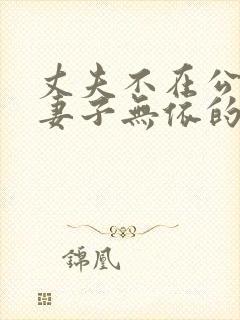 丈夫不在公
妻子無依的
錦凰